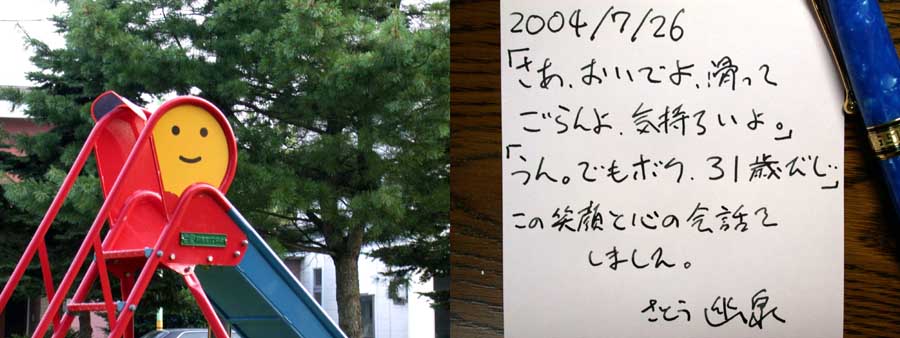 2004/7/26
「さあ、おいでよ、滑って
ごらんよ、気持ちいいよ。」
「うん。でもボク、31歳だし…」
この笑顔と心の会話を
しました。
さとう